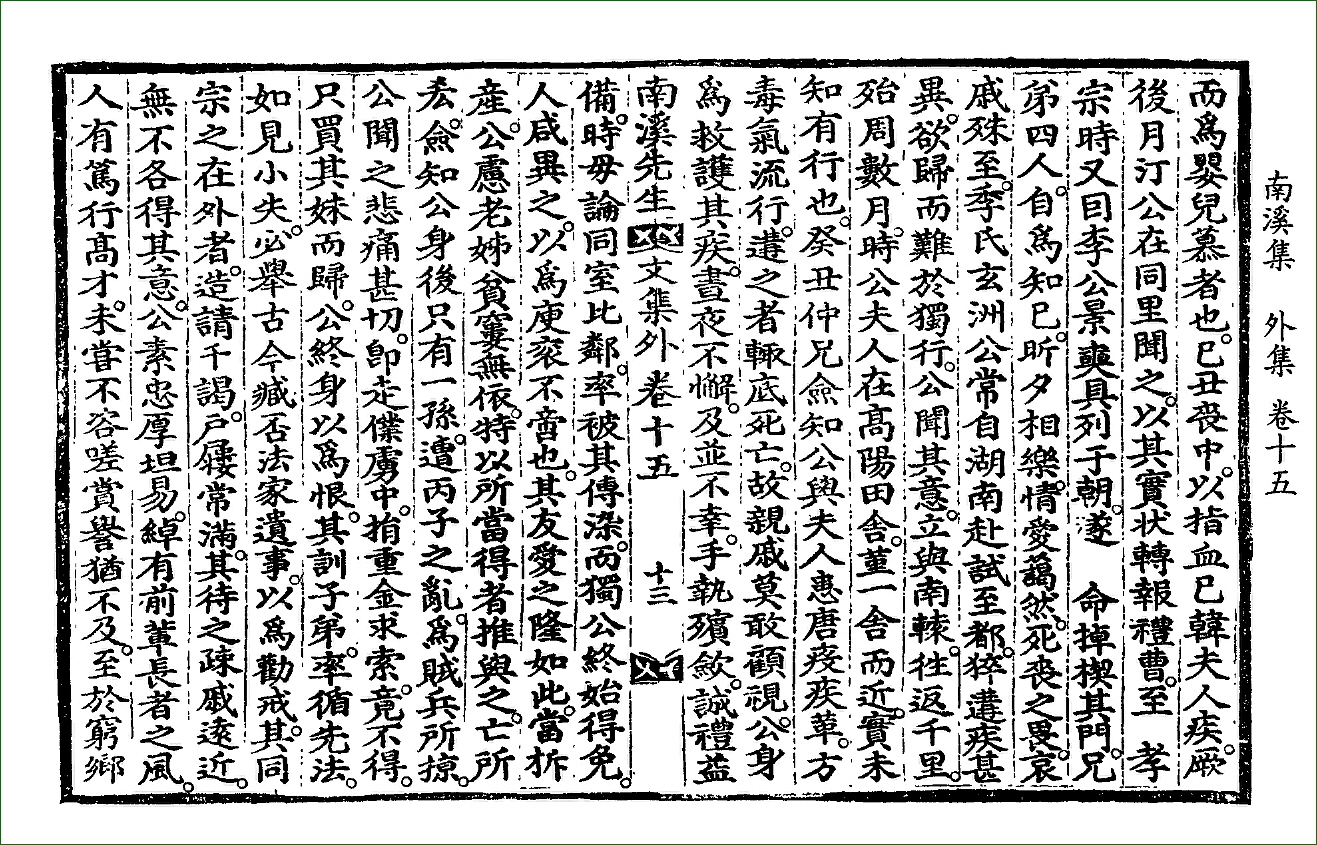 南溪集　外集　卷十五
而爲嬰兒慕者也。己丑喪中。以指血已韓夫人疾。厥
後月汀公在同里聞之。以其實狀轉報禮曹。至　孝
宗時又因李公景奭具列于朝。遂　命掉楔其門。兄
弟四人。自爲知己。昕夕相樂。情愛藹然。死喪之畏。哀
戚殊至。季氏玄洲公常自湖南赴試至都。猝遘疾甚
異。欲歸而難於獨行。公聞其意。立與南轅。往返千里。
殆周數月。時公夫人在高陽田舍。菫一舍而近。實未
知有行也。癸丑仲兄僉知公與夫人患唐疫疾革。方
毒氣流行。遘之者輒底死亡。故親戚莫敢顧視。公身
爲救護其疾。晝夜不懈。及並不幸。手執殯歛。誠禮益
南溪先生文集外卷十五　十三
備。時毋論同室比鄰。率被其傳染。而獨公終始得免。
人咸異之。以爲庾衮不啻也。其友愛之隆如此。當析
産。公慮老姊貧窶無依。特以所當得者推與之。亡所
吝。僉知公身後只有一孫。遭丙子之亂。爲賊兵所掠。
公聞之悲痛甚切。卽走僕虜中。捐重金求索。竟不得。
只買其妹而歸。公終身以爲恨。其訓子弟。率循先法。
如見小失。必擧古今臧否法家遺事。以爲勸戒。其同
宗之在外者。造請干謁。戶屨常滿。其待之疎戚遠近。
無不各得其意。公素忠厚坦易。綽有前輩長者之風。
人有篤行高才。未嘗不咨嗟賞譽猶不及。至於窮鄕